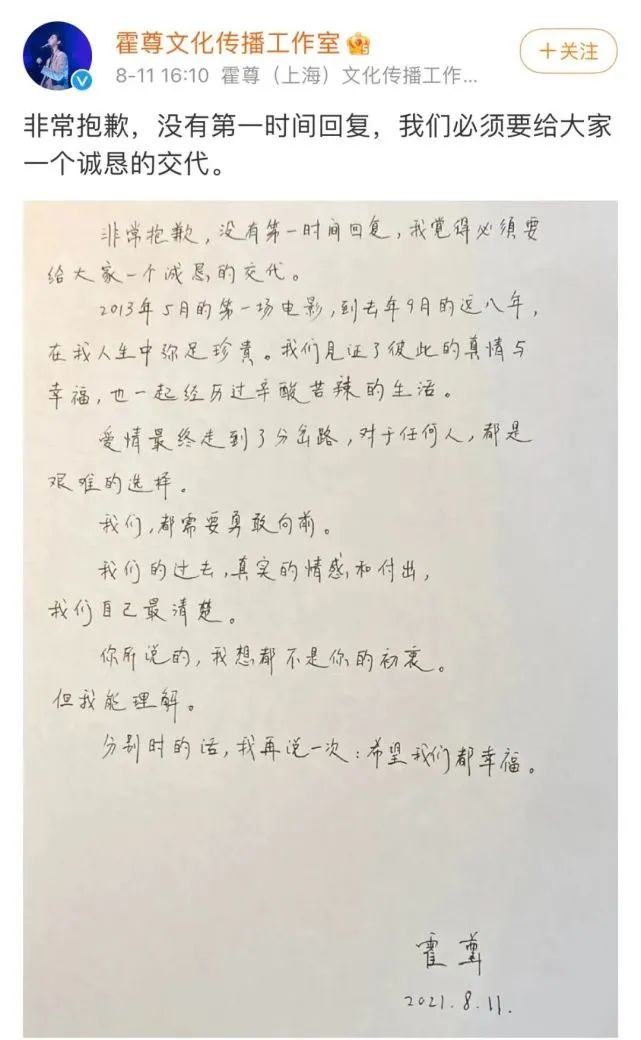 霍尊文化传播工作室
+关注
8-11 16:10 霍尊（上海）文化传播工作...
非常抱歉，没有第一时间回复，我们必须要给大家
一个诚恳的交代。
非常抱歉，没有第一时间回复，我觉得必须要
给大家一个诚恳的交代。
2013年5月的第一场电影，到去年9月的这八年，
在我人生中弥足珍贵。我们见证了彼此的真情与
幸福，也一起经历过辛酸苦辣的生活。
爱情最终走到了分岔路，对于任何人，都是
艰难的选择。
我们，都需要勇敢向前。
我们的过去，真实的情感和付出，
我们自己最清楚。
你所说的，我想都不是你的初衷。
但我能理解。
分别时的话，我再说一次：希望我们都幸福。
霍尊
2021.8.11.